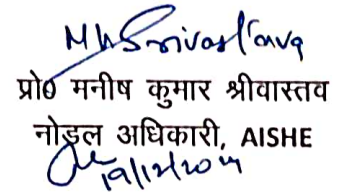 MKSrivastava
प्रो० मनीष कुमार श्रीवास्तव
नोडल अधिकारी, AISHE
19/12/2024